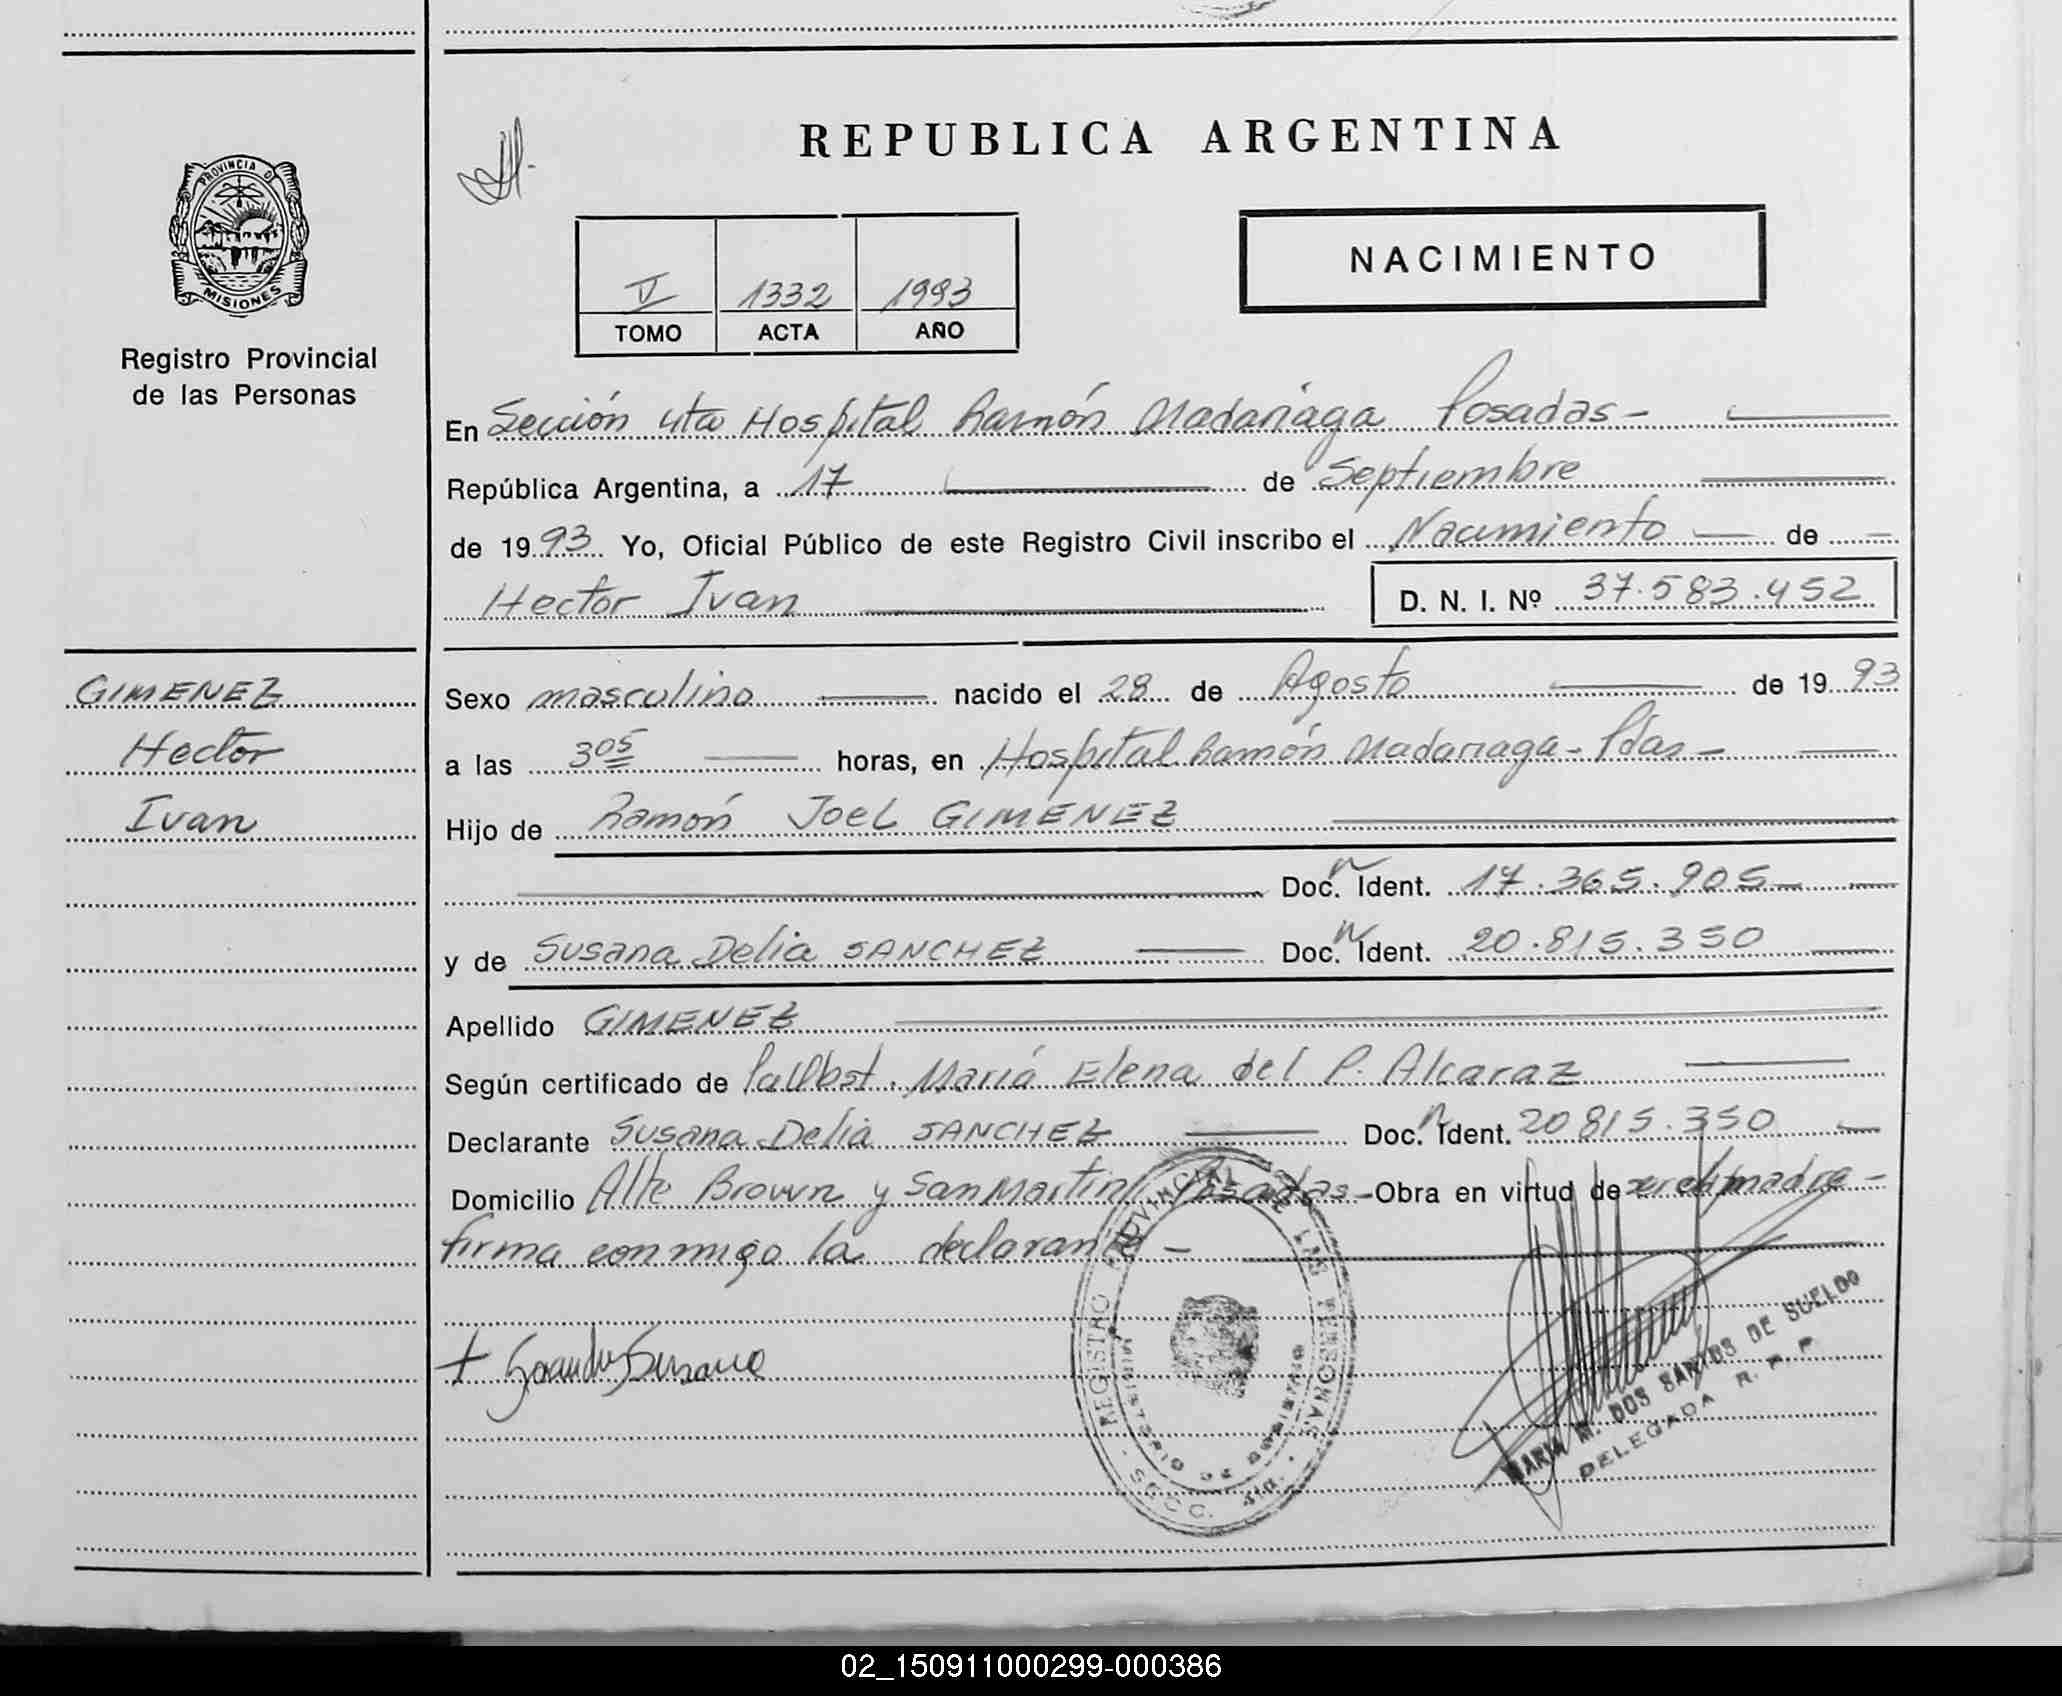 REPUBLICA ARGENTINA
PROVINCIA D
MISIONES
Registro Provincial
de las Personas
V 1332 1993
TOMO ACTA AÑO
NACIMIENTO
En Sección 4ta Hospital Ramón Madariaga Posadas-
República Argentina, a 17 de Septiembre
de 1993 Yo, Oficial Público de este Registro Civil inscribo el Nacimiento de
Hector Ivan D. N. I. Nº 37.583.452
GIMENEZ
Hector
Ivan
Sexo masculino nacido el 28 de Agosto de 1993
a las 3 05 horas, en Hospital Ramón Madariaga - Pdas -
Hijo de Ramón Joel GIMENEZ
Doc. N Ident. 17.365.905
y de Susana Delia SANCHEZ Doc. N Ident. 20.815.350
Apellido GIMENEZ
Según certificado de María Elena del P. Alcaraz
Declarante Susana Delia SANCHEZ Doc. N Ident. 20815.350
Domicilio Alte Brown y San Martin Posadas - Obra en virtud de ser el madre -
firma conmigo la declarante -
REGISTRO PROVINCIAL DE LAS PERSONAS
MINISTERIO DE GOBIERNO
SECC. 4ta.
MARIA M. DOS SANTOS DE SUELDO
DELEGADA R. P. P.
02_150911000299-000386